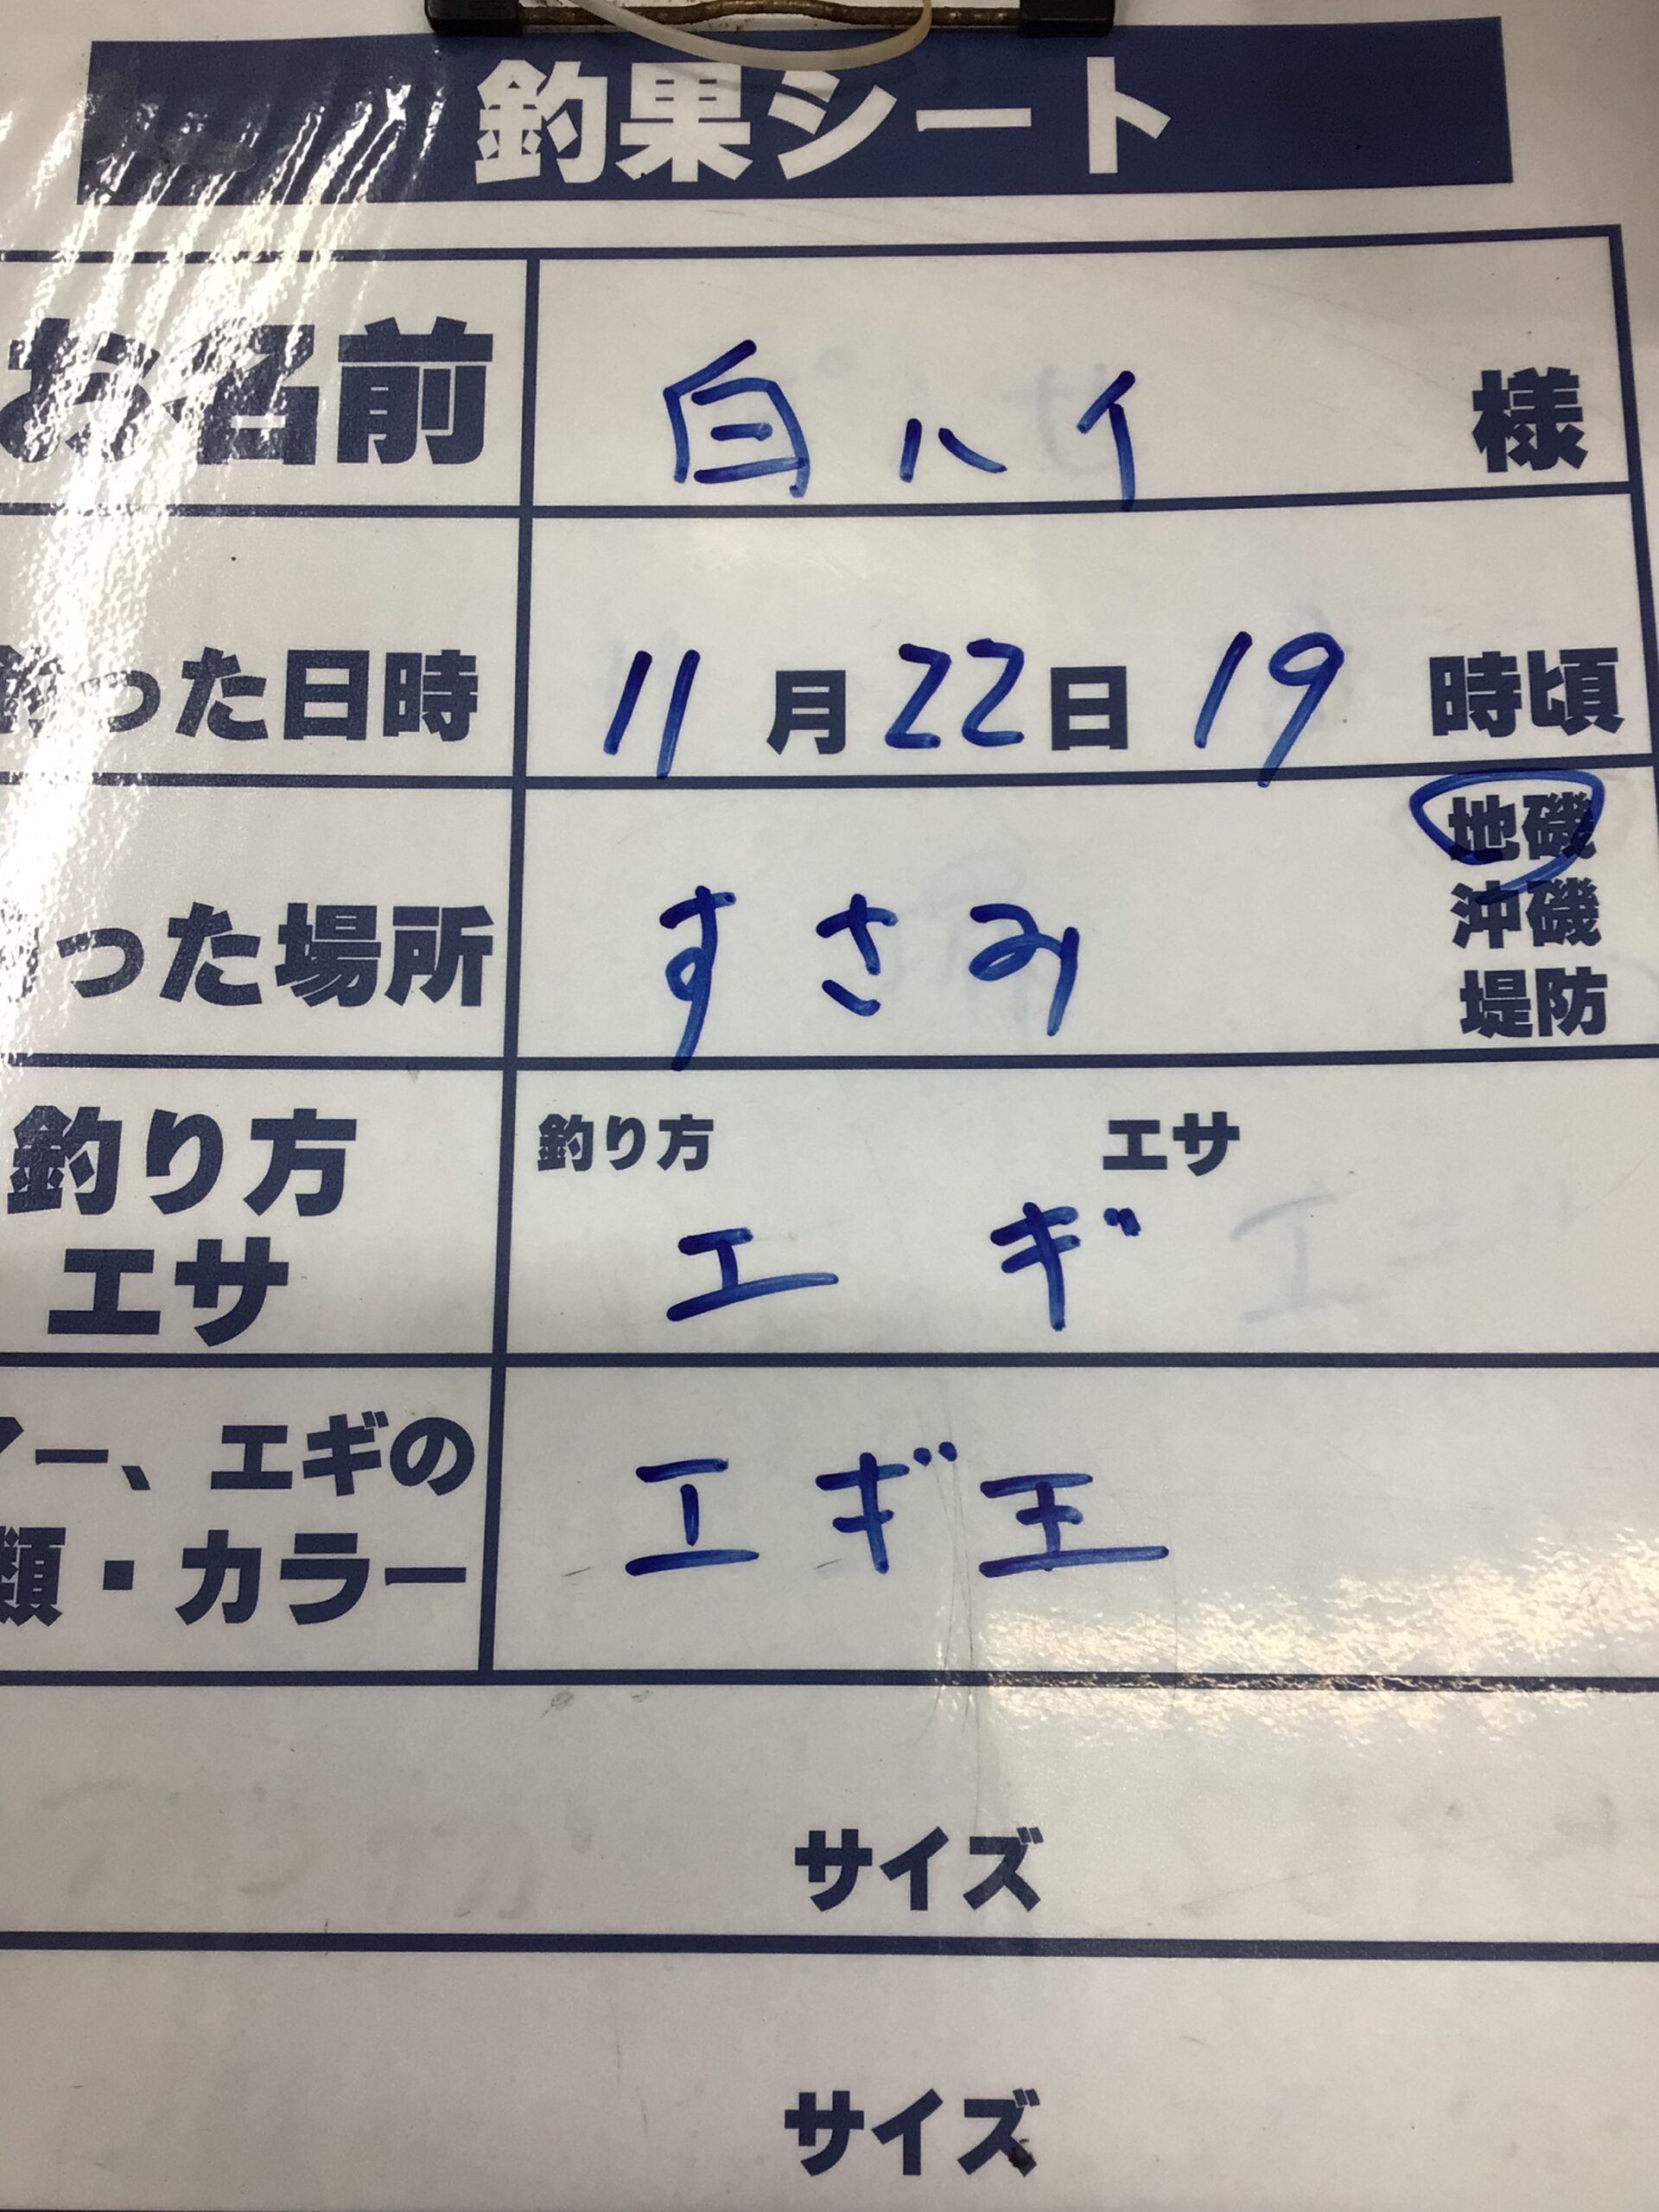 釣果シート
お名前 白ハイ 様
釣った日時 11月22日 19時頃
地磯
った場所 すさみ 沖磯
堤防
釣り方 釣り方 エサ
エサ エギ
アー、エギの エギ王
類・カラー
サイズ
サイズ